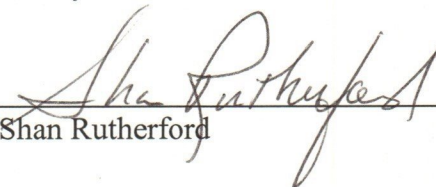 Shan Rutherford
Shan Rutherford